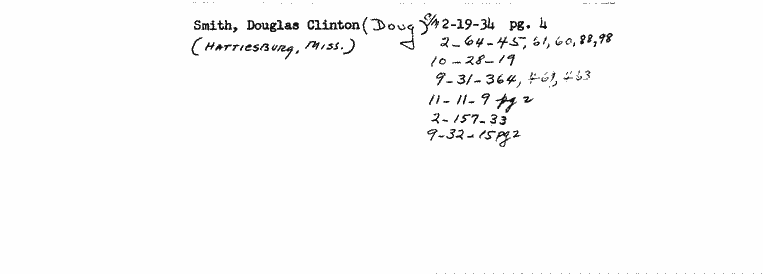 Smith, Douglas Clinton (Doug) S/A 2-19-34 pg. 4
(HATTIESBURG, MISS.) 2-64-45, 61, 60, 88, 98
10-28-19
9-31-364, 461, 463
11-11-9 pg 2
2-157-33
9-32-15 pg 2